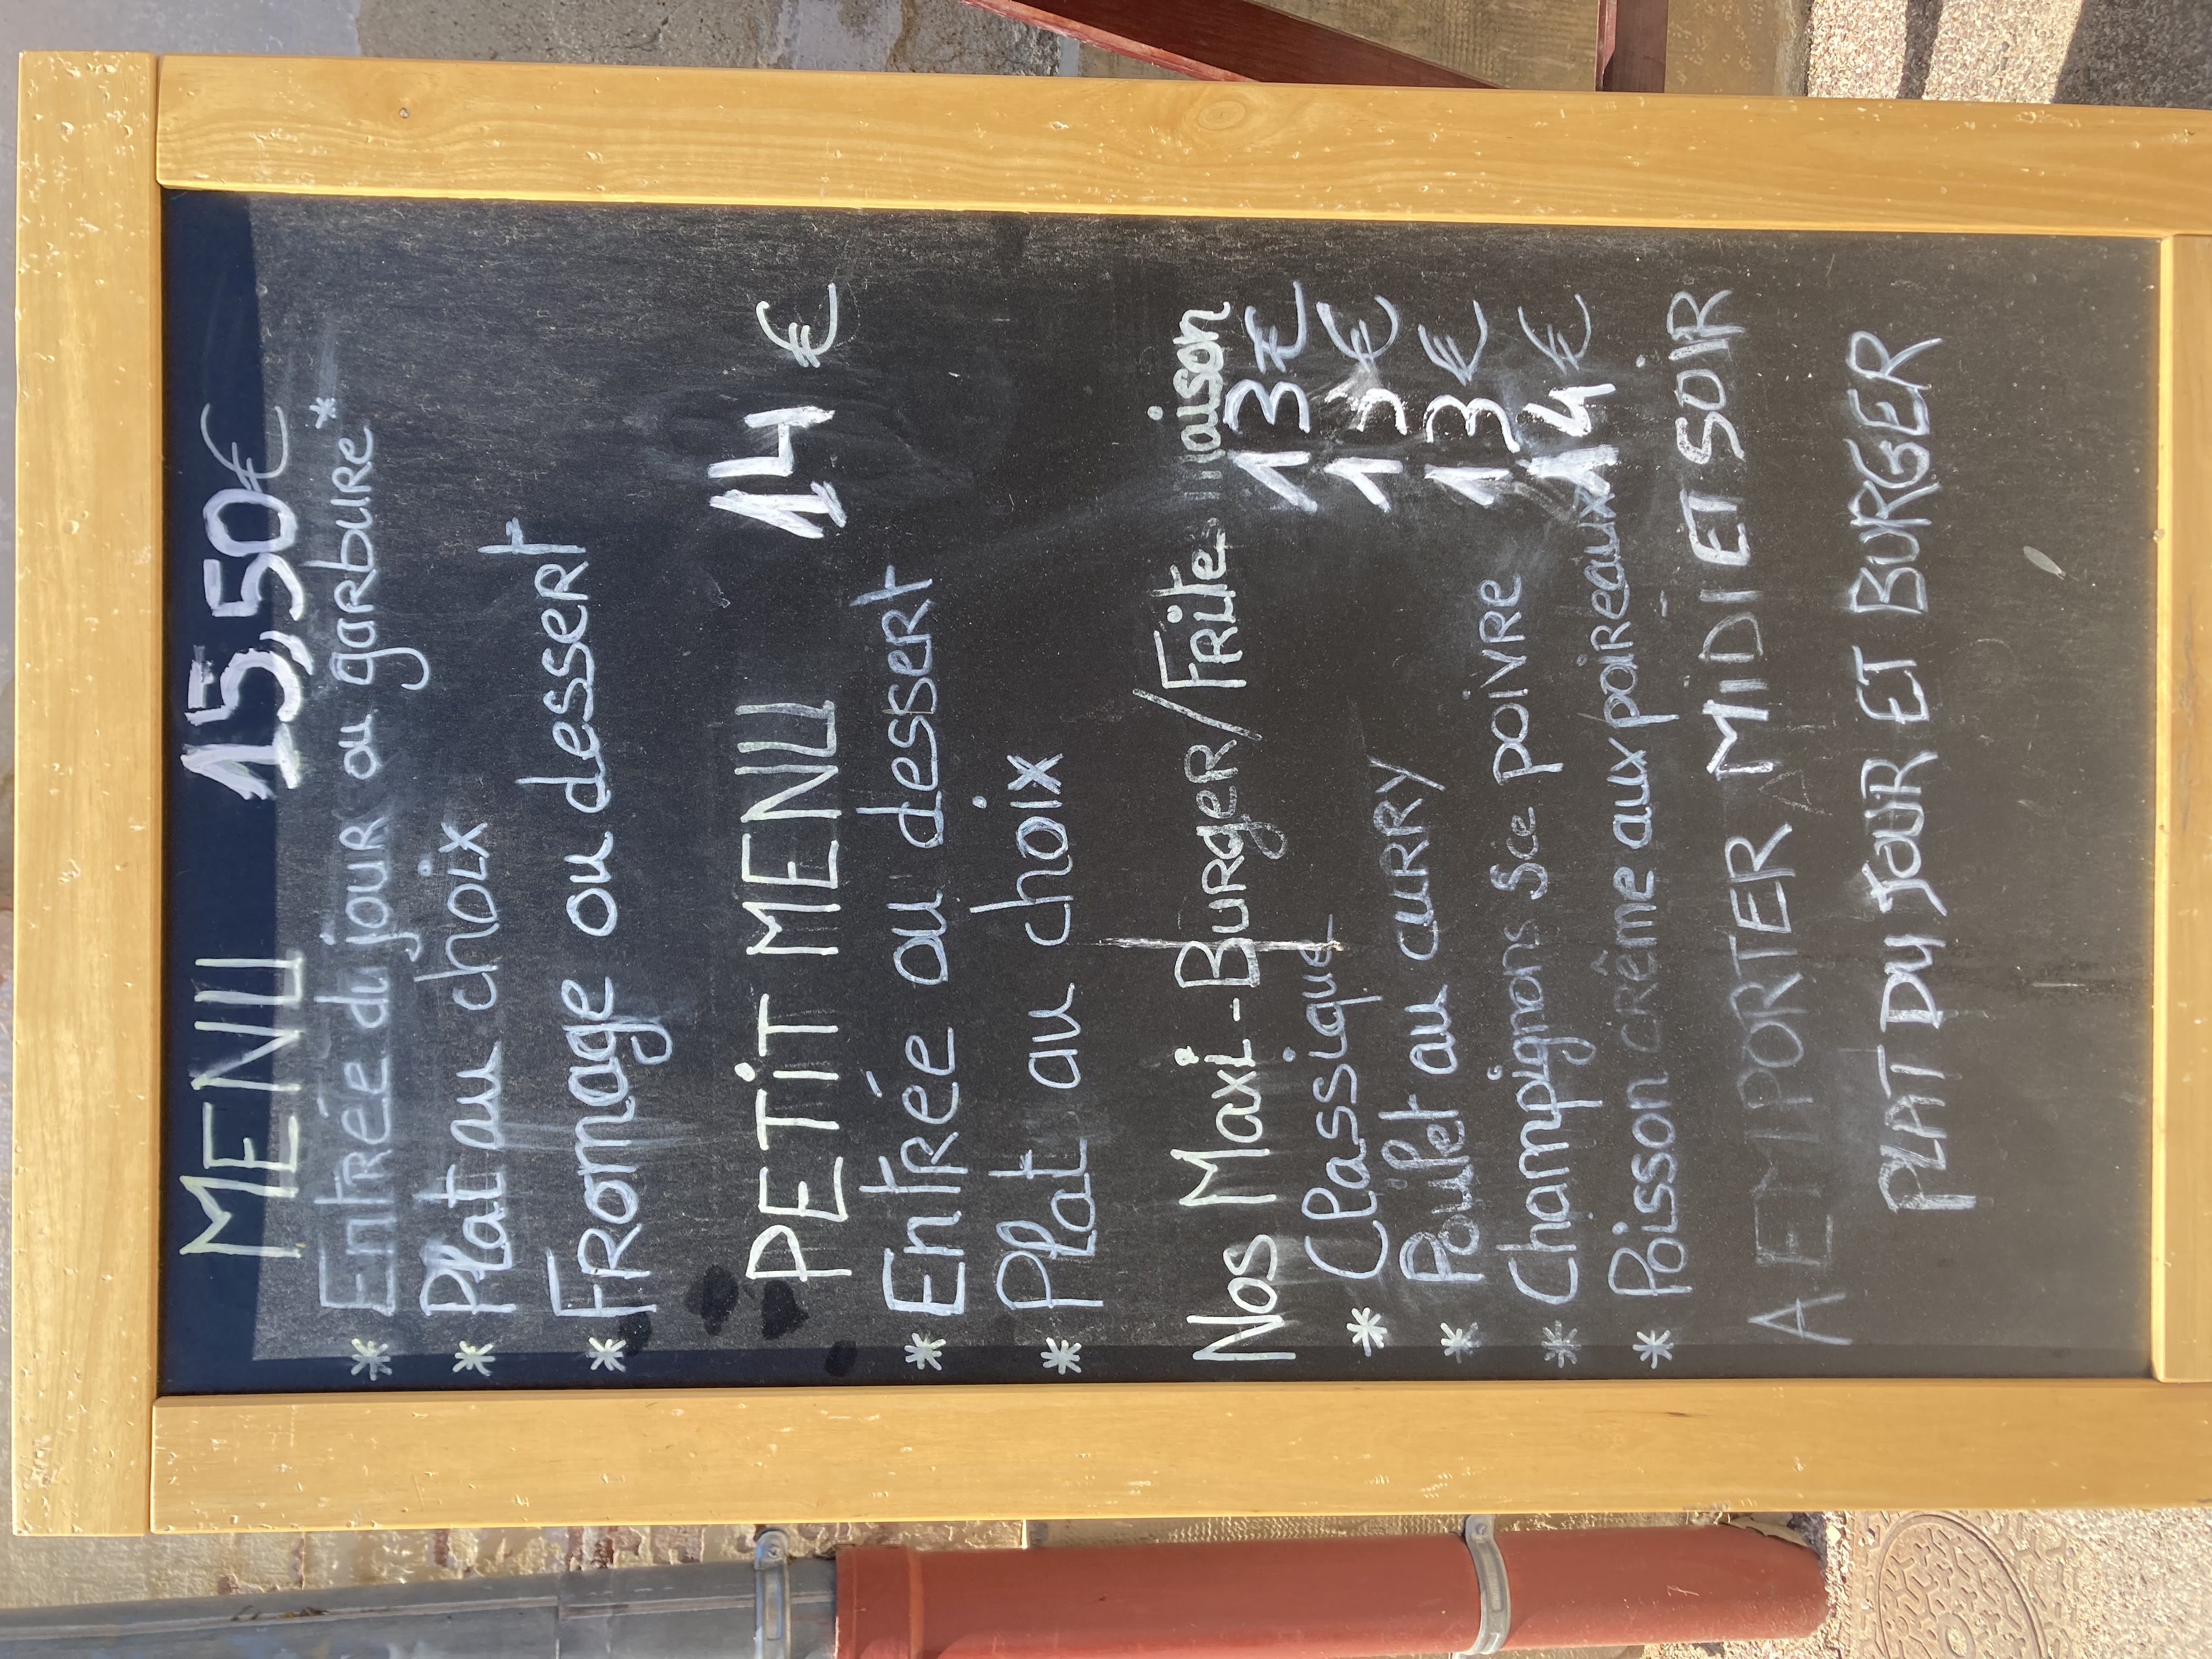 MENU 15,50€
* Entrée du jour ou garbure *
* Plat au choix
* Fromage ou dessert
PETIT MENU 14 €
* Entrée ou dessert
* Plat au choix
Nos Maxi-Burger/Frites maison
* Classique 13€
* Poulet au curry 13 €
* Champignons Sce poivre 13 €
* Poisson crême aux poireaux 14 €
A EMPORTER MIDI ET SOIR
PLAT DU JOUR ET BURGER